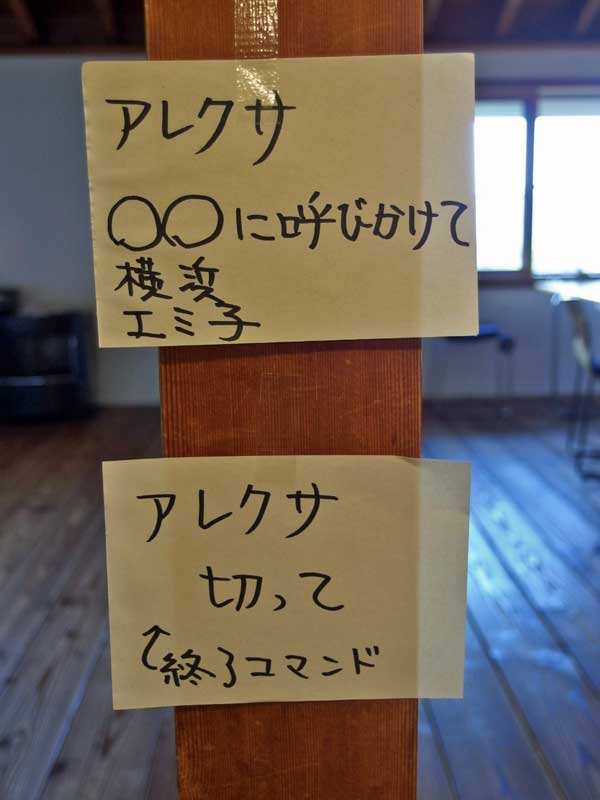 アレクサ
〇〇に呼びかけて
横浜
エミ子
アレクサ
切って
↑終了コマンド